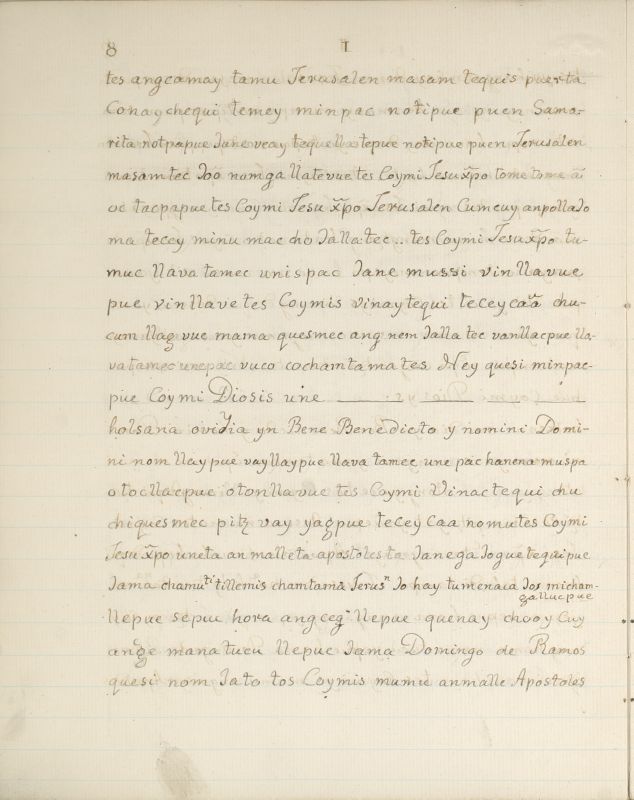 8 I
tes angcamay tamu Jerusalen masam tequis puerta
Conaychequi temey minpac notipue puen Sama-
rita notpapue Jane veay tequella tepue notipue puen Jerusalen
masamtec Joo namga llatevue tes Coymi Jesu xp̃o tome tome
oc tacpapue tes Coymi Jesu xp̃o Jerusalen Cumcuy anpolla Jo
ma tecey minu mac cho Jalla tec .. tes Coymi Jesu xp̃o tu-
muc llava tamec unispac Jane mussi vin llavue
pue vin llave tes Coymis vinaytequi teceycaã chu-
cum llag vue mama quesmec ang nem Jalla tec vanllacpue lla-
vatamec unepac vuco cochamtama tes Ney quesi minpac-
pue Coymi Diosis une
holsana ovidia yn Bene Benedicto y nomini Domi-
ni nom llaypue vayllaypue llava tamec une pac hanena muspa
otocllacpue otonllavue tes Coymi Vinactequi chu
chiquesmec pitz vay yagpue tecey Caa nomutes Coymi
Jesu xp̃o uneta an malleta apostolesta Janega Joguetequipue
Jama chamuti tillemis chamtama Jerusn Jo hay tumenaca Jos micham-
gallucpue
llepue sepiu hora angceg llepue quenay chooy Cuy
angze manatucu llepue Jama Domingo de Ramos
quesi nom Jato tos Coymis mumu anmalle Apostoles